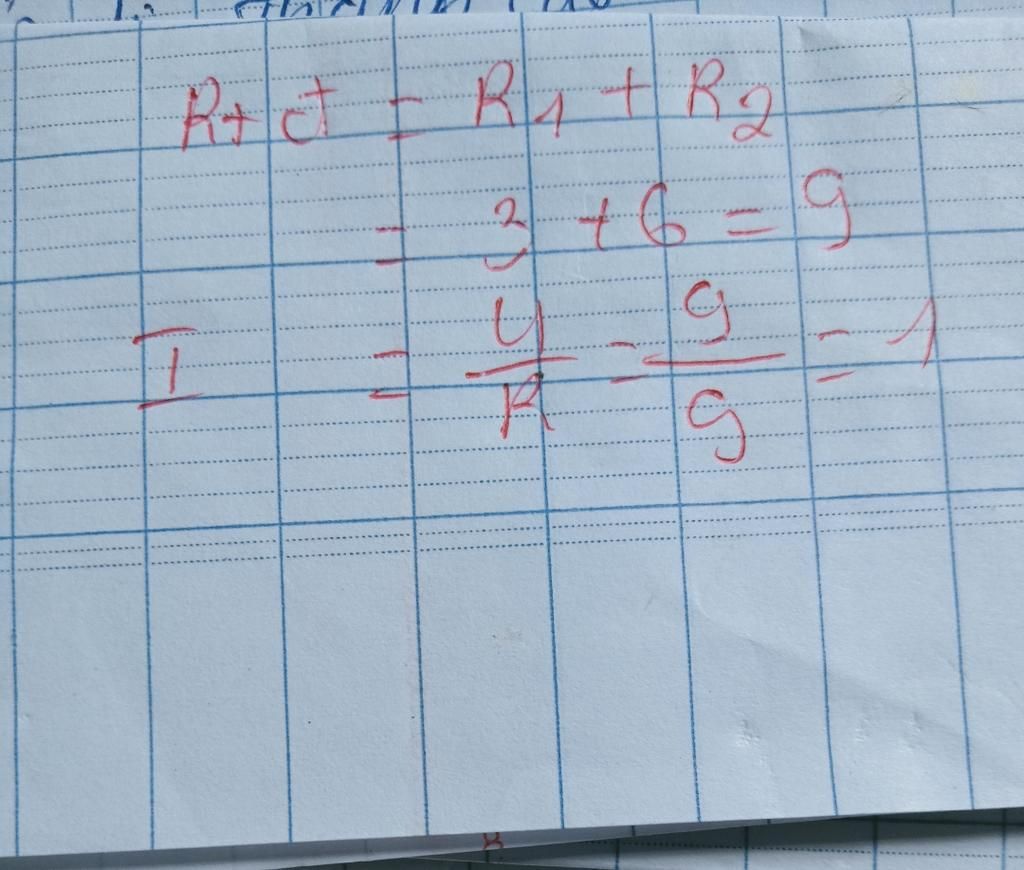 R+đ = R1 + R2
= 3 + 6 = 9
I = U/R = 9/9 = 1